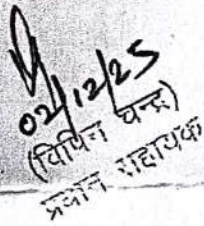 02/12/25
(विपिन चन्द्र)
प्रधान सहायक